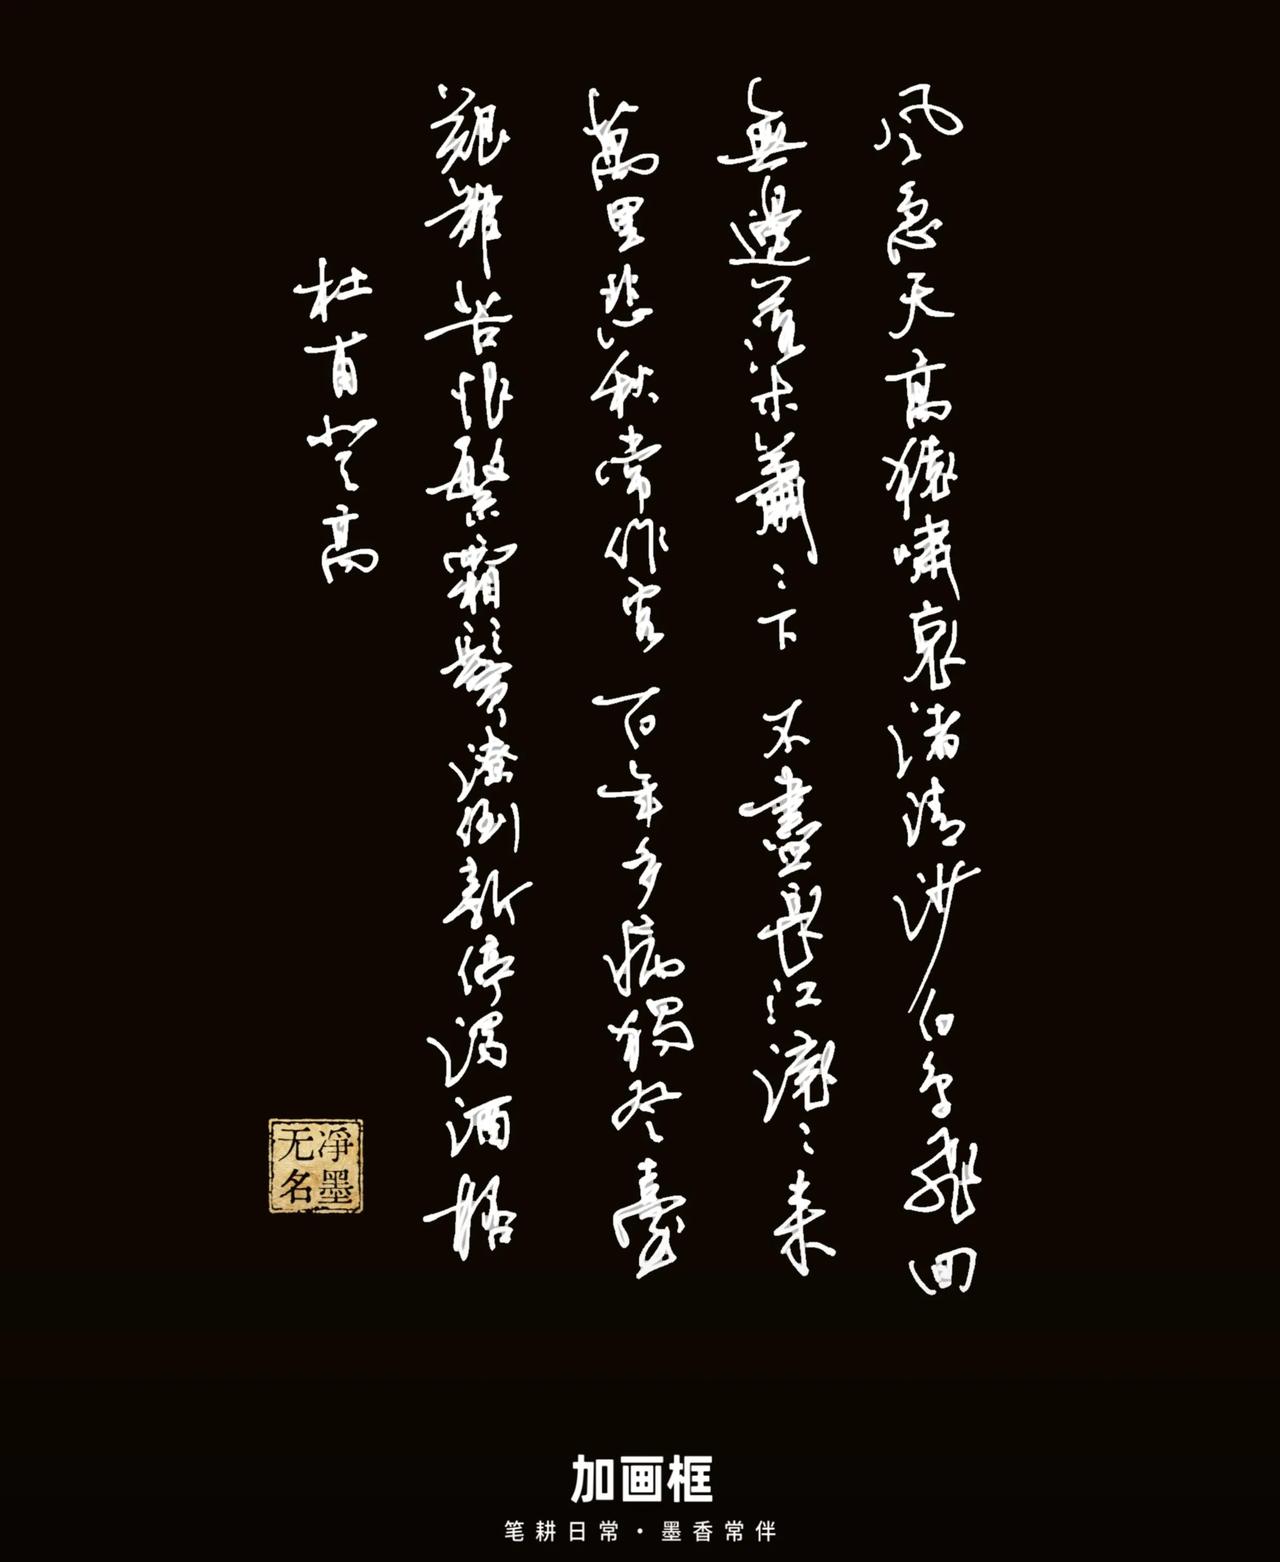 风急天高猿啸哀渚清沙白鸟飞回
無邊落木蕭〻下 不盡長江滚〻来
萬里悲秋常作客 百年多病獨登臺
艱難苦恨繁霜鬓潦倒新停濁酒杯
杜甫登高
净墨
无名
加画框
笔耕日常·墨香常伴